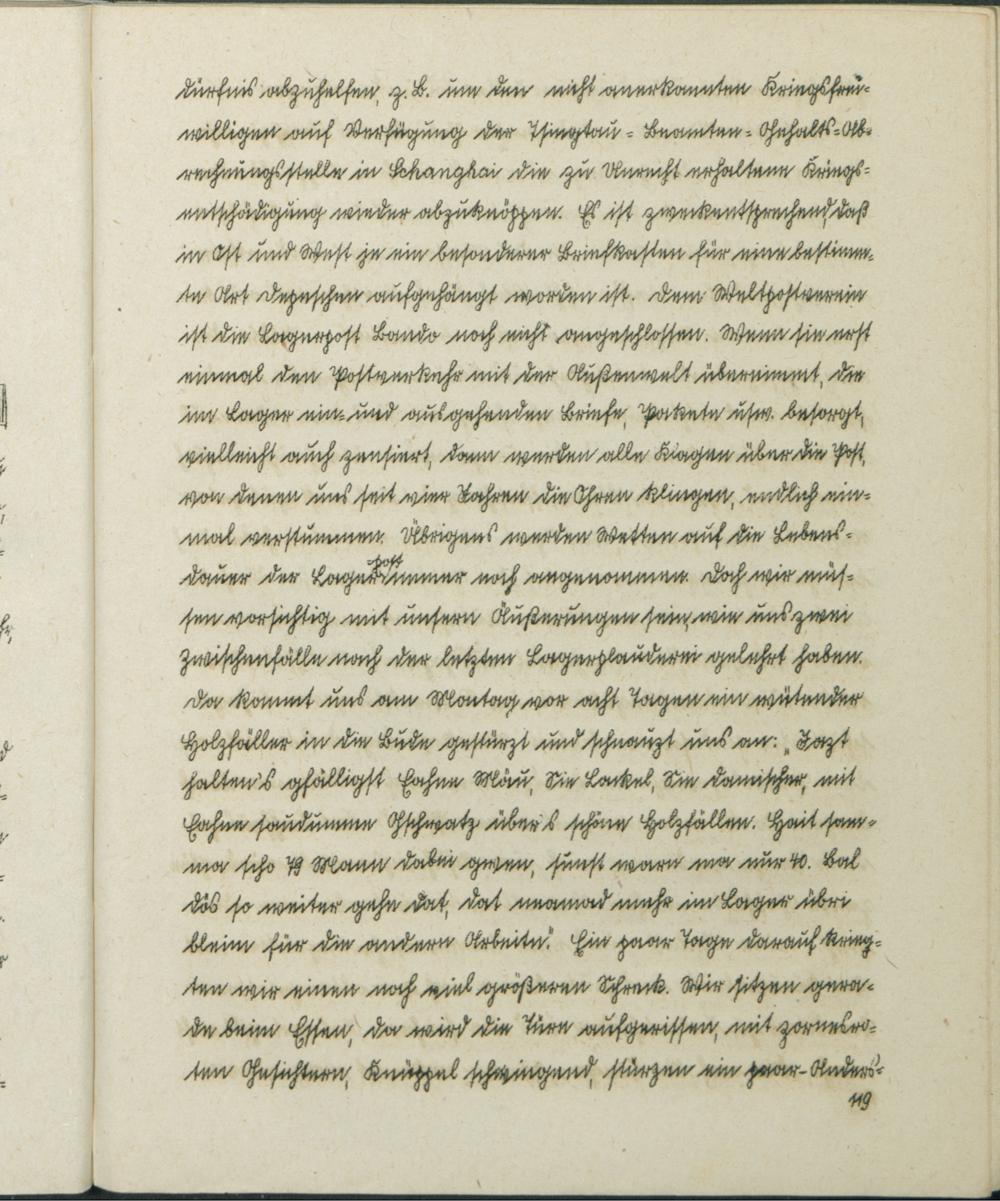 dürfnis abzuhelfen, z. B. um den nicht anerkannten Kriegsfrei-
willigen auf Verfügung der Tsingtau-Beamten-Gehalts-Ab-
rechnungsstelle in Schanghai die zu Unrecht erhaltene Kriegs-
entschädigung wieder abzuknöppen. Es ist zweckentsprechend, daß
in Ost und West je ein besonderer Briefkasten für eine bestimm-
te Art Depeschen aufgehängt worden ist. Dem Weltpostverein
ist die Lagerpost Bando noch nicht angeschlossen. Wenn sie erst
einmal den Postverkehr mit der Außenwelt übernimmt, die
im Lager ein- und ausgehenden Briefe, Pakete usw. besorgt,
vielleicht auch zensiert, dann werden alle Klagen über die Post,
von denen uns seit vier Jahren die Ohren klingen, endlich ein-
mal verstummen. Übrigens werden Wetten auf die Lebens-
dauer der Lagerpost immer noch angenommen. Doch wir müs-
sen vorsichtig mit unsern Äußerungen sein, wie uns zwei
Zwischenfälle nach der letzten Lagerplauderei gelehrt haben.
Da kommt uns am Montag vor acht Tagen ein wütender
Holzfäller in die Bude gestürzt und schnauzt uns an: „Jazt
halten's gfälligst Eahne Mäu, Sie Lackel, Sie damischer, mit
Eahne saudumme Gschwatz über's schöne Holzfällen. Hait sam-
ma scho 79 Mann dabei gwen, sunst warn ma nur 40. Bal
dös so weiter gehn dat, dat neamad mehr im Lager übri
bleim für die andern Arbeitn." Ein paar Tage darauf krieg-
ten wir einen noch viel größeren Schreck. Wir sitzen gera-
de beim Essen, da wird die Türe aufgerissen, mit zornesro-
ten Gesichtern, Knüppel schwingend, stürzen ein paar Anders-
119